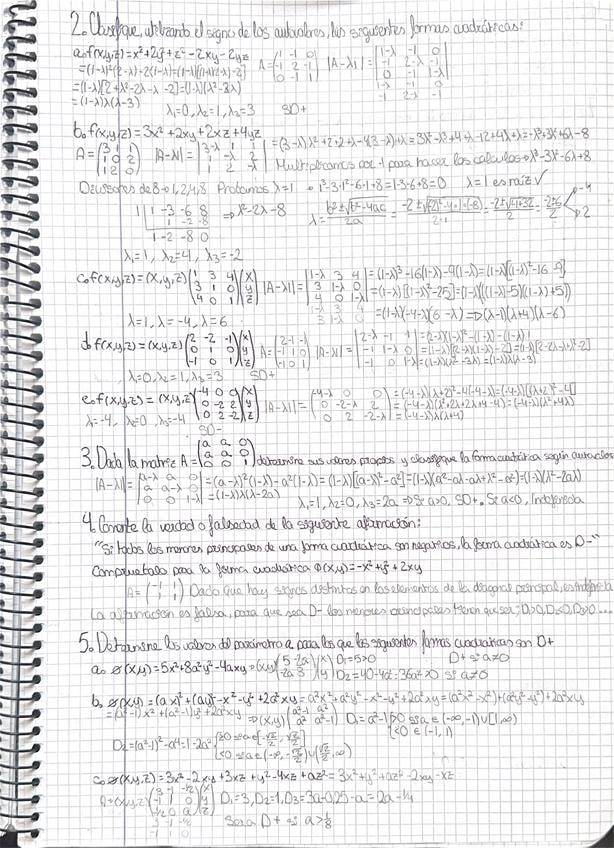 2. Clasifique, utilizando el signo de los autovalores, las siguientes formas cuadráticas:
a. f(x,y,z)=x²+2y²+z²-2xy-2yz A=(1 -1 0 / -1 2 -1 / 0 -1 1) |A-λI|=|1-λ -1 0 / -1 2-λ -1 / 0 -1 1-λ|
=(1-λ)²(2-λ)-2(1-λ)=(1-λ)[(1-λ)(2-λ)-2]
=(1-λ)[2+λ²-2λ-λ-2]=(1-λ)(λ²-3λ) 1-λ -1 0
=(1-λ)λ(λ-3) λ₁=0, λ₂=1, λ₃=3 SD+ -1 2-λ -1
b. f(x,y,z)=3x²+2xy+2xz+4yz
A=(3 1 1 / 1 0 2 / 1 2 0) |A-λI|=|3-λ 1 1 / 1 -λ 2 / 1 2 -λ|=(3-λ)λ²+2+2+λ-4(3-λ)+λ=3λ²-λ³+4+λ-12+4λ+λ=-λ³+3λ²+6λ-8
Multiplicamos por -1 para hacer los calculos → λ³-3λ²-6λ+8
Divisores de 8→1,2,4,8 Probamos λ=1 → 1³-3·1²-6·1+8=1-3-6+8=0 λ=1 es raíz √
1| 1 -3 -6 8 / 1 -2 -8 / 1 -2 -8 0 ⇒ λ²-2λ-8
λ₁=1, λ₂=4, λ₃=-2
c. f(x,y,z)=(x,y,z)(1 3 4 / 3 1 0 / 4 0 1)(x / y / z) |A-λI|=|1-λ 3 4 / 3 1-λ 0 / 4 0 1-λ|=(1-λ)³-16(1-λ)-9(1-λ)=(1-λ)[(1-λ)²-16-9]
=(1-λ)[(1-λ)²-25]=(1-λ)((1-λ)-5)((1-λ)+5))
1-λ 3 4 / 3 1-λ 0 =(1-λ)(-λ-4)(6-λ)⇒(λ-1)(λ+4)(λ-6)
λ=1, λ=-4, λ=6
d. f(x,y,z)=(x,y,z)(2 -2 -1 / 0 1 0 / -1 0 1)(x / y / z) A=(2 -1 -1 / -1 1 0 / -1 0 1) |A-λI|=|2-λ -1 -1 / -1 1-λ 0 / -1 0 1-λ|=(2-λ)(1-λ)²-(1-λ)-(1-λ)
=(1-λ)[(2-λ)(1-λ)-2]=(1-λ)[2-2λ-λ+λ²-2]
=(1-λ)(λ²-3λ)=(1-λ)λ(λ-3)
λ₁=0, λ₂=1, λ₃=3 SD+
e. f(x,y,z)=(x,y,z)(-4 0 0 / 0 -2 2 / 0 2 -2)(x / y / z) |A-λI|=(-4-λ 0 0 / 0 -2-λ 2 / 0 2 -2-λ)=(-4-λ)(λ+2)²-4(-4-λ)=(-4-λ)[(λ+2)²-4]
=(-4-λ)(λ²+2λ+2λ+4-4)=(-4-λ)(λ²+4λ)
=(-4-λ)λ(λ+4)
λ₁=-4, λ₂=0, λ₃=-4 SD-
3. Dada la matriz A=(a a 0 / a a 0 / 0 0 1) determine sus valores propios y clasifique la forma cuadrática según autovalores
|A-λI|=|a-λ a 0 / a a-λ 0 / 0 0 1-λ|=(a-λ)²(1-λ)-a²(1-λ)=(1-λ)[(a-λ)²-a²]=(1-λ)(a²-aλ-aλ+λ²-a²)=(1-λ)(λ²-2aλ)
=(1-λ)λ(λ-2a) λ₁=1, λ₂=0, λ₃=2a ⇒ Si a>0, SD+. Si a<0, Indefinida
4. Comente la verdad o falsedad de la siguiente afirmación:
"Si todos los menores principales de una forma cuadrática son negativos, la forma cuadrática es D-"
Compruébalo para la forma cuadrática Φ(x,y)=-x²+y²+2xy
A=(-1 1 / 1 1) Dado que hay signos distintos en los elementos de la diagonal principal, es indefinida
La afirmación es falsa, para que sea D- los menores principales tienen que ser; D₁<0, D₂>0, D₃<0 ...
5. Determine los valores del parámetro a para los que las siguientes formas cuadráticas son D+
a. Φ(x,y)=5x²+8a²y²-4axy=(x,y) D₁=5>0 D+ si a≠0
D₂=40-4a²=36a²>0 si a≠0
b. Φ(x,y)=(ax)²+(ay)²-x²-y²+2a²xy=a²x²+a²y²-x²-y²+2a²xy=(a²x²-x²)+(a²y²-y²)+2a²xy
=(a²-1)x²+(a²-1)y²+2a²xy ⇒(x,y)(a²-1 a² / a² a²-1) D₁=a²-1 >0 si a∈(-∞,-1)∪[1,∞) / <0 ∈(-1,1)
D₂=(a²-1)²-a⁴=1-2a² >0 si a∈[-√2/2, √2/2] / <0 si a∈(-∞,-√2/2)∪(√2/2,∞)
c. Φ(x,y,z)=3x²-2xy+3xz+y²-4xz+az²=3x²+y²+az²-2xy-xz
A=(x,y,z)(3 -1 -1/2 / -1 1 0 / -1/2 0 a)(x / y / z) D₁=3, D₂=2, D₃=3a-0,25-a=2a-1/4
3 -1 -1/2 / -1 1 0 Será D+ si a>1/8